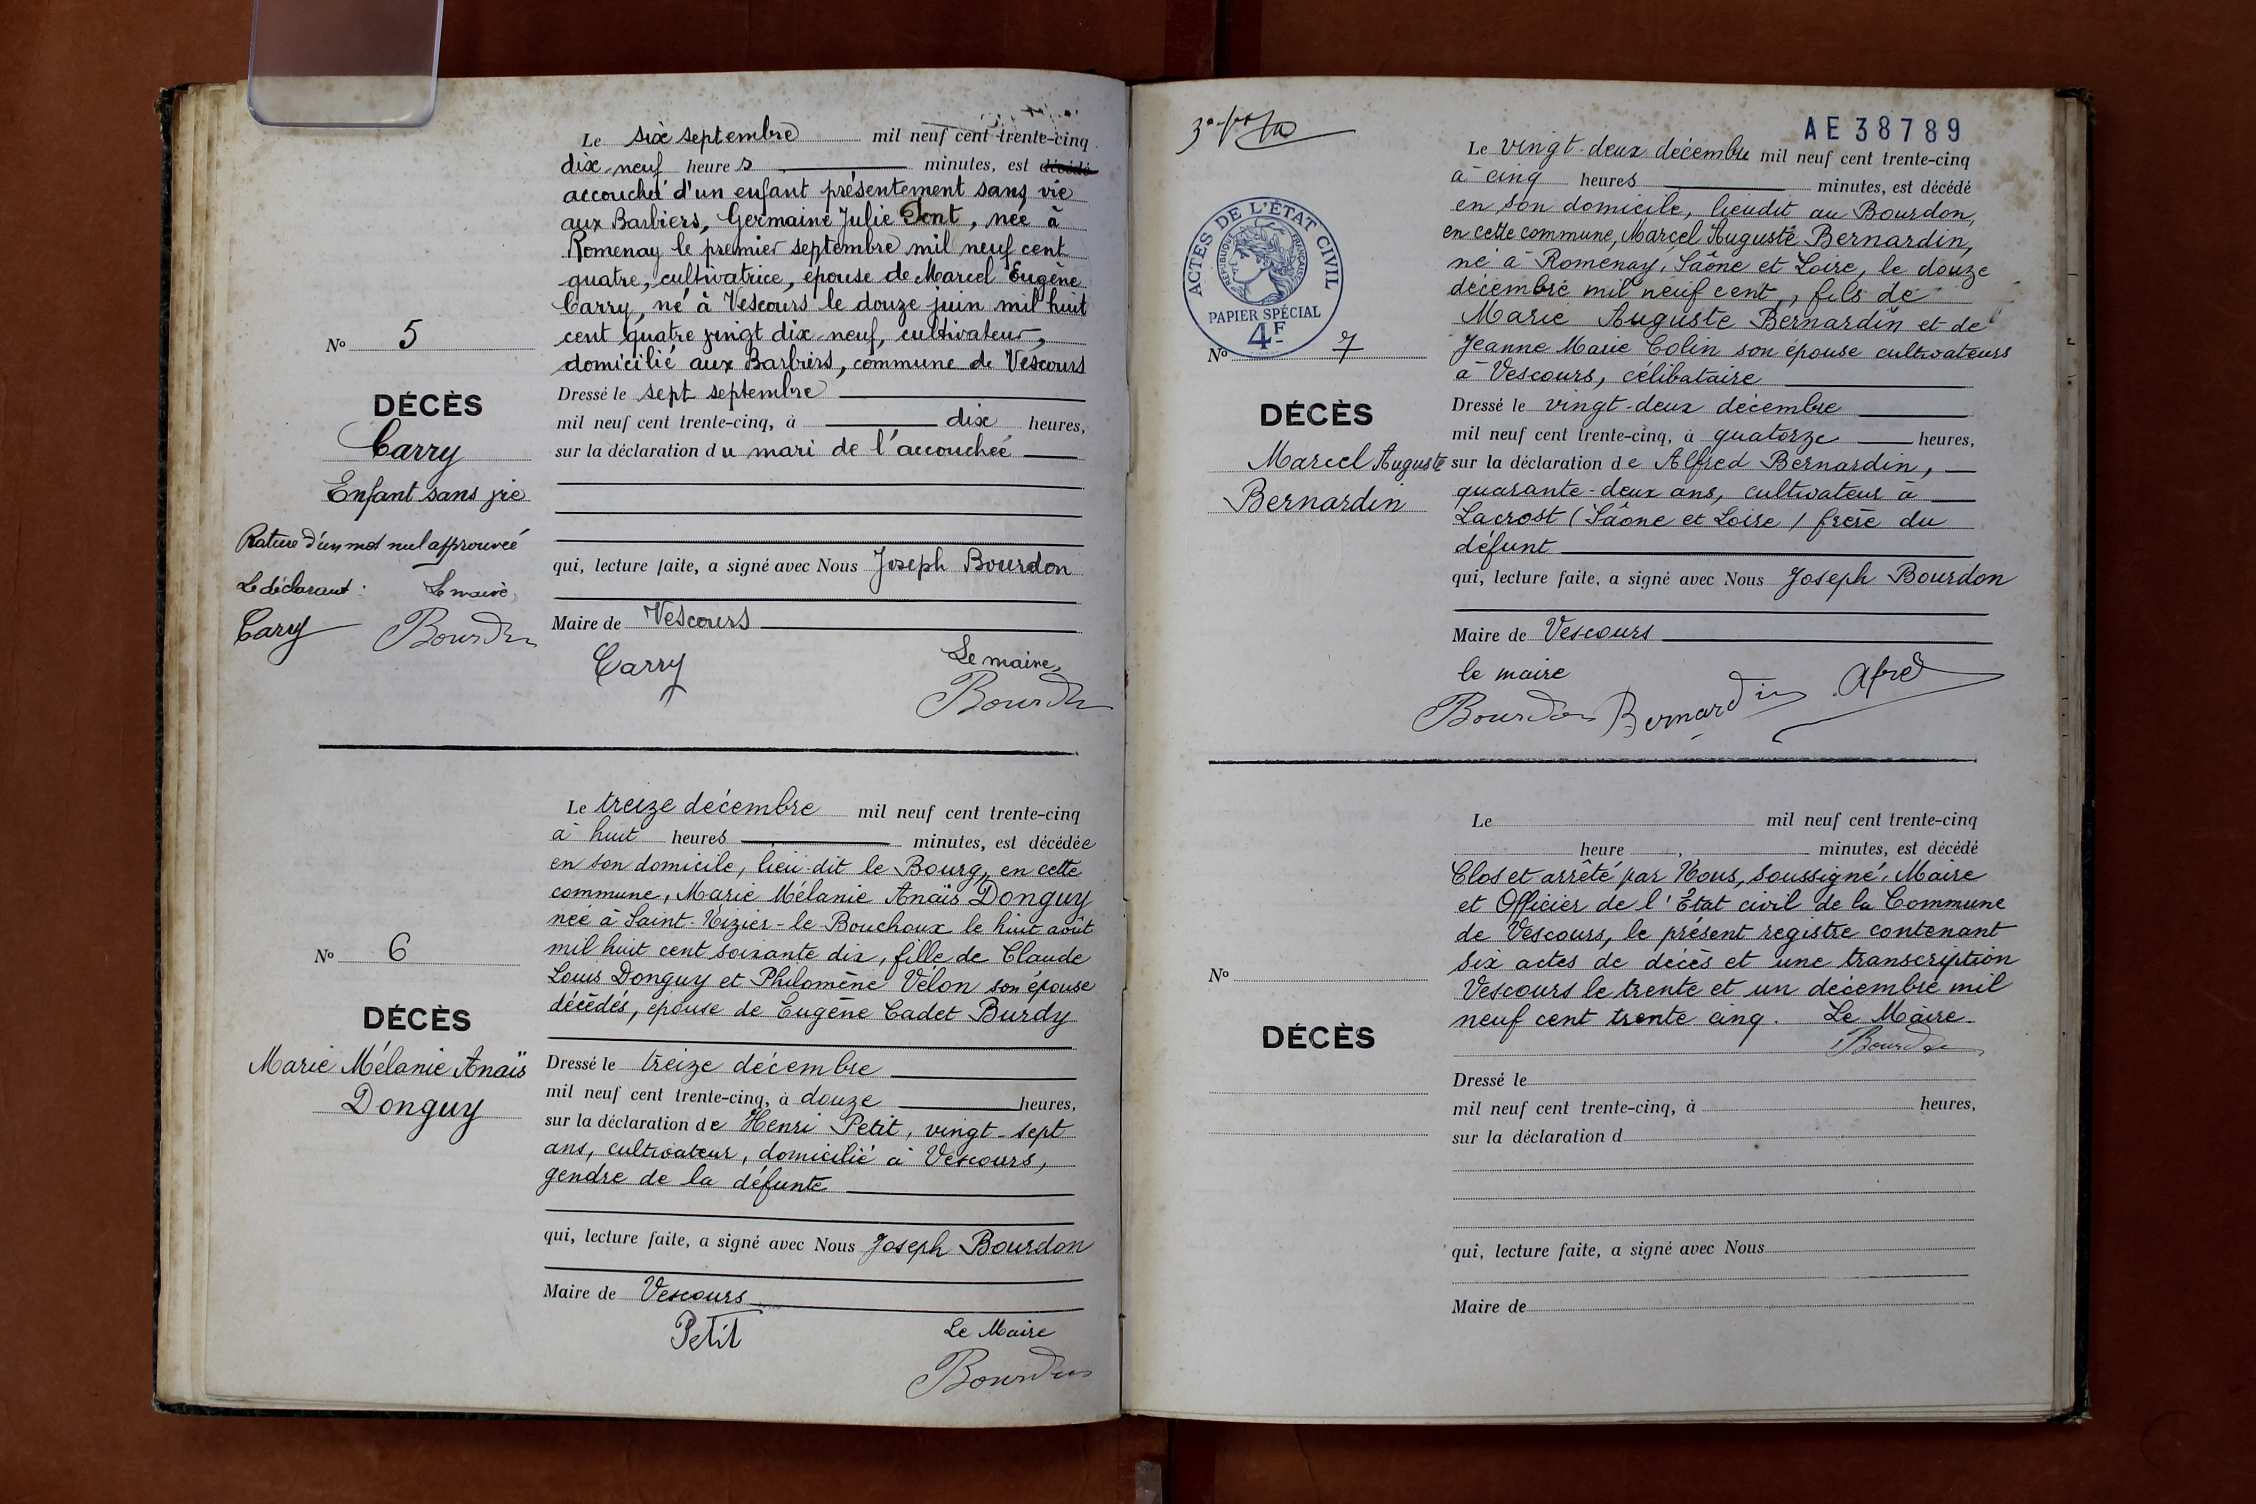 Le six septembre mil neuf cent trente-cinq
dix-neuf heures minutes, est décédé
accouchée d'un enfant présentement sans vie
aux Barbiers, Germaine Julie Pont, née à
Romenay le premier septembre mil neuf cent
quatre, cultivatrice, épouse de Marcel Eugène
Carry, né à Vescours le douze juin mil huit
cent quatre vingt dix neuf, cultivateur,
domicilié aux Barbiers, commune de Vescours
Dressé le sept septembre
mil neuf cent trente-cinq, à dix heures,
sur la déclaration du mari de l'accouchée
qui, lecture faite, a signé avec Nous Joseph Bourdon
Maire de Vescours
Carry
Le maire,
Bourdon
N° 5
DÉCÈS
Carry
Enfant sans vie
Rature d'un mot nul approuvée
Le déclarant : Le maire,
Carry Bourdon
Le treize décembre mil neuf cent trente-cinq
à huit heures minutes, est décédée
en son domicile, lieu-dit le Bourg, en cette
commune, Marie Mélanie Anaïs Donguy
née à Saint-Nizier-le Bouchoux le huit août
mil huit cent soixante dix, fille de Claude
Louis Donguy et Philomène Vélon son épouse
décédés, épouse de Eugène Cadet Burdy
Dressé le treize décembre
mil neuf cent trente-cinq, à douze heures,
sur la déclaration de Henri Petit, vingt-sept
ans, cultivateur, domicilié à Vescours,
gendre de la défunte
qui, lecture faite, a signé avec Nous Joseph Bourdon
Maire de Vescours
Petit
Le Maire
Bourdon
N° 6
DÉCÈS
Marie Mélanie Anaïs
Donguy
AE38789
Le vingt-deux décembre mil neuf cent trente-cinq
à cinq heures minutes, est décédé
en son domicile, lieudit au Bourdon,
en cette commune, Marcel Auguste Bernardin,
né à Romenay, Saône et Loire, le douze
décembre mil neuf cent, fils de
Marie Auguste Bernardin et de
Jeanne Marie Colin son épouse cultivateurs
à Vescours, célibataire
Dressé le vingt-deux décembre
mil neuf cent trente-cinq, à quatorze heures,
sur la déclaration de Alfred Bernardin,
quarante-deux ans, cultivateur à
Lacrost (Saône et Loire) frère du
défunt
qui, lecture faite, a signé avec Nous Joseph Bourdon
Maire de Vescours
le maire
Bourdon Bernardin Afred
ACTES DE L'ÉTAT CIVIL
RÉPUBLIQUE FRANÇAISE
PAPIER SPÉCIAL
4F
N° 7
DÉCÈS
Marcel Auguste
Bernardin
Le mil neuf cent trente-cinq
heure minutes, est décédé
Clos et arrêté par Nous, soussigné, Maire
et Officier de l'État civil de la Commune
de Vescours, le présent registre contenant
six actes de décès et une transcription
Vescours le trente et un décembre mil
neuf cent trente cinq. Le Maire.
Bourdon
Dressé le
mil neuf cent trente-cinq, à heures,
sur la déclaration d
qui, lecture faite, a signé avec Nous
Maire de
N°
DÉCÈS